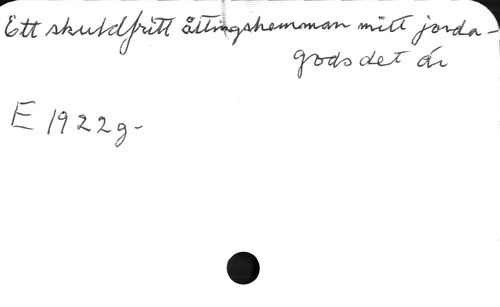 Ett skuldfritt åttingshemman mitt jorda-
gods det är
E 1922g-